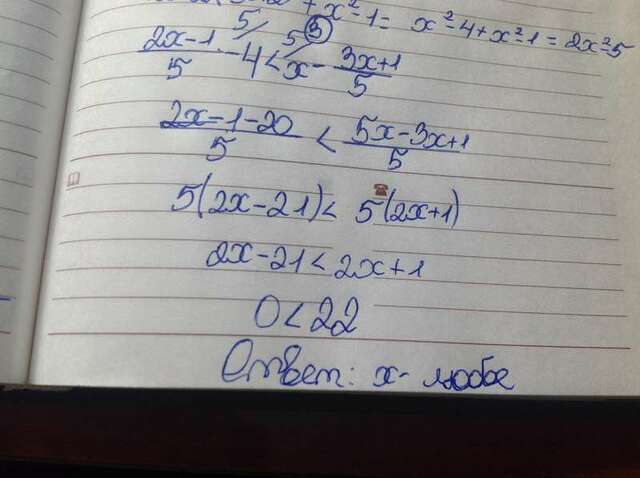 + x²-1= x²-4+x²-1=2x²-5
③
5 5
2x-1/5 - 4 < x - 3x+1/5
2x-1-20/5 < 5x-3x+1/5
5(2x-21)< 5(2x+1)
2x-21<2x+1
0<22
Ответ: x- любое